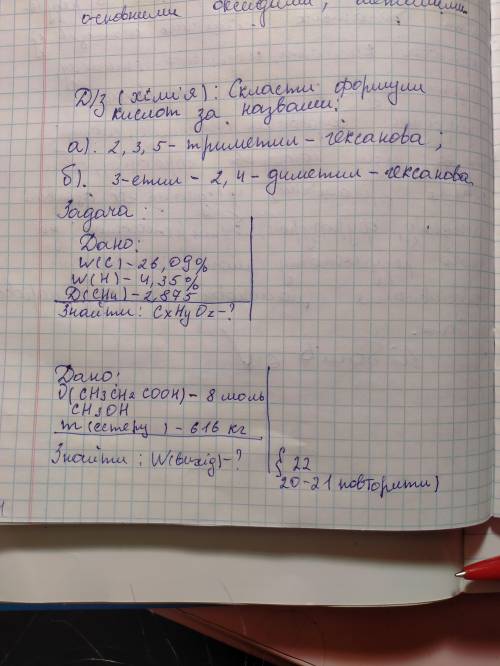 основними оксидами,
Д/з (хімія): Скласти формули
кислот за назвами:
а). 2, 3, 5 - триметил - гексанова;
б). 3-етил - 2, 4 - диметил - гексанова.
Задача:
Дано:
W(C) - 26,09%
W(H) - 4,35%
D(CH4) - 2,875
Знайти: CxHyOz - ?
Дано:
(CH3CH2COOH) - 8 моль
CH3OH
m (естеру) - 616 кг
Знайти: W(вихід) - ?
§ 22
20-21 повторити)